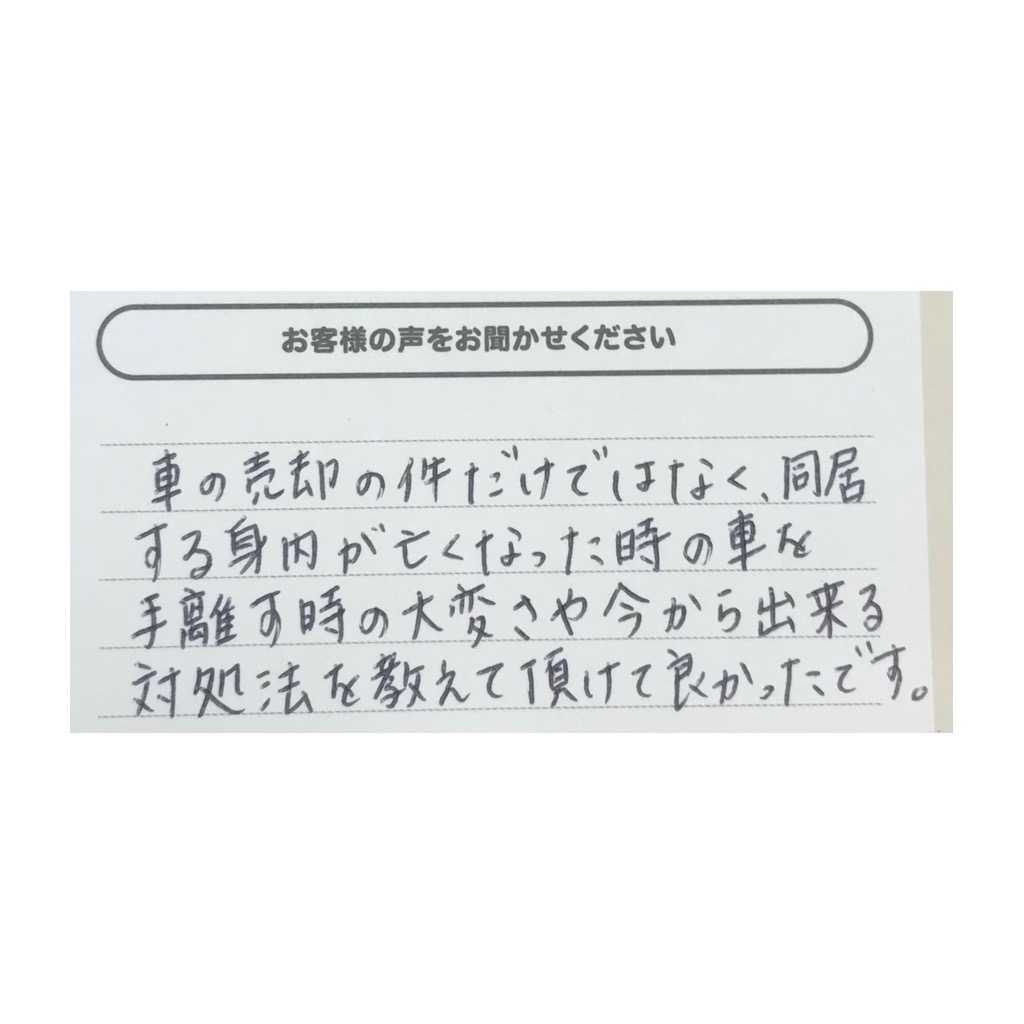 お客様の声をお聞かせください
車の売却の件だけではなく、同居
する身内が亡くなった時の車を
手離す時の大変さや今から出来る
対処法を教えて頂けて良かったです。